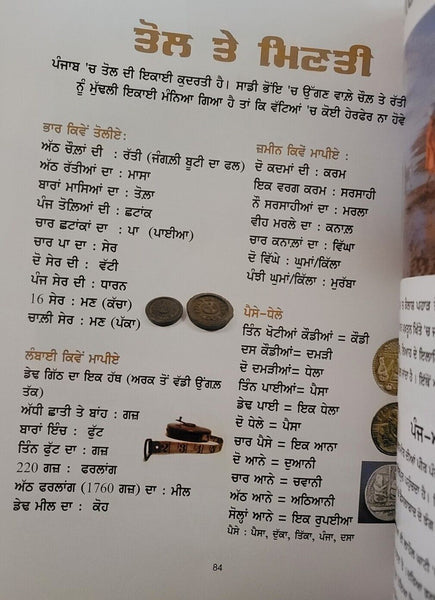 ਤੋਲ ਤੇ ਮਿਣਤੀ
ਪੰਜਾਬ 'ਚ ਤੋਲ ਦੀ ਇਕਾਈ ਕੁਦਰਤੀ ਹੈ। ਸਾਡੀ ਭੋਂਇ 'ਚ ਉੱਗਣ ਵਾਲ਼ੇ ਚੌਲ਼ ਤੇ ਰੱਤੀ
ਨੂੰ ਮੁੱਢਲੀ ਇਕਾਈ ਮੰਨਿਆ ਗਿਆ ਹੈ ਤਾਂ ਕਿ ਵੱਟਿਆਂ 'ਚ ਕੋਈ ਹੇਰਫੇਰ ਨਾ ਹੋਵੇ
ਭਾਰ ਕਿਵੇਂ ਤੋਲੀਏ:
ਅੱਠ ਚੌਲਾਂ ਦੀ : ਰੱਤੀ (ਜੰਗਲ਼ੀ ਬੂਟੀ ਦਾ ਫਲ)
ਅੱਠ ਰੱਤੀਆਂ ਦਾ : ਮਾਸਾ
ਬਾਰਾਂ ਮਾਸਿਆਂ ਦਾ : ਤੋਲ਼ਾ
ਪੰਜ ਤੋਲ਼ਿਆਂ ਦੀ : ਛਟਾਂਕ
ਚਾਰ ਛਟਾਂਕਾਂ ਦਾ : ਪਾ (ਪਾਈਆ)
ਚਾਰ ਪਾ ਦਾ : ਸੇਰ
ਦੋ ਸੇਰ ਦੀ : ਵੱਟੀ
ਪੰਜ ਸੇਰ ਦੀ : ਧਾਰਨ
16 ਸੇਰ : ਮਣ (ਕੱਚਾ)
ਚਾਲ਼ੀ ਸੇਰ : ਮਣ (ਪੱਕਾ)
ਲੰਬਾਈ ਕਿਵੇਂ ਮਾਪੀਏ
ਡੇਢ ਗਿੱਠ ਦਾ ਇਕ ਹੱਥ (ਅਰਕ ਤੋਂ ਵੱਡੀ ਉਂਗਲ਼
ਤੱਕ)
ਅੱਧੀ ਛਾਤੀ ਤੇ ਬਾਂਹ : ਗਜ਼
ਬਾਰਾਂ ਇੰਚ : ਫੁੱਟ
ਤਿੰਨ ਫੁੱਟ ਦਾ : ਗਜ਼
220 ਗਜ਼ : ਫਰਲਾਂਗ
ਅੱਠ ਫਰਲਾਂਗ (1760 ਗਜ਼) ਦਾ : ਮੀਲ
ਡੇਢ ਮੀਲ ਦਾ : ਕੋਹ
ਜ਼ਮੀਨ ਕਿਵੇਂ ਮਾਪੀਏ :
ਦੋ ਕਦਮਾਂ ਦੀ : ਕਰਮ
ਇਕ ਵਰਗ ਕਰਮ : ਸਰਸਾਹੀ
ਨੌਂ ਸਰਸਾਹੀਆਂ ਦਾ : ਮਰਲਾ
ਵੀਹ ਮਰਲੇ ਦਾ : ਕਨਾਲ਼
ਚਾਰ ਕਨਾਲ਼ਾਂ ਦਾ : ਵਿੱਘਾ
ਦੋ ਵਿੱਘੇ : ਘੁਮਾਂ/ਕਿੱਲਾ
ਪੰਝੀ ਘੁਮਾਂ/ਕਿੱਲਾ : ਮੁਰੱਬਾ
ਪੈਸੇ-ਧੇਲੇ
ਤਿੰਨ ਖੋਟੀਆਂ ਕੌਡੀਆਂ = ਕੌਡੀ
ਦਸ ਕੌਡੀਆਂ = ਦਮੜੀ
ਦੋ ਦਮੜੀਆਂ= ਧੇਲਾ
ਤਿੰਨ ਪਾਈਆਂ= ਪੈਸਾ
ਡੇਢ ਪਾਈ = ਇਕ ਧੇਲਾ
ਦੋ ਧੇਲੇ = ਪੈਸਾ
ਚਾਰ ਪੈਸੇ = ਇਕ ਆਨਾ
ਦੋ ਆਨੇ = ਦੁਆਨੀ
ਚਾਰ ਆਨੇ = ਚਵਾਨੀ
ਅੱਠ ਆਨੇ = ਅਠਿਆਨੀ
ਸੋਲ੍ਹਾਂ ਆਨੇ = ਇਕ ਰੁਪਈਆ
ਪੈਸੇ : ਪੈਸਾ, ਦੁੱਕਾ, ਤਿੱਕਾ, ਪੰਜਾ, ਦਸਾ
84